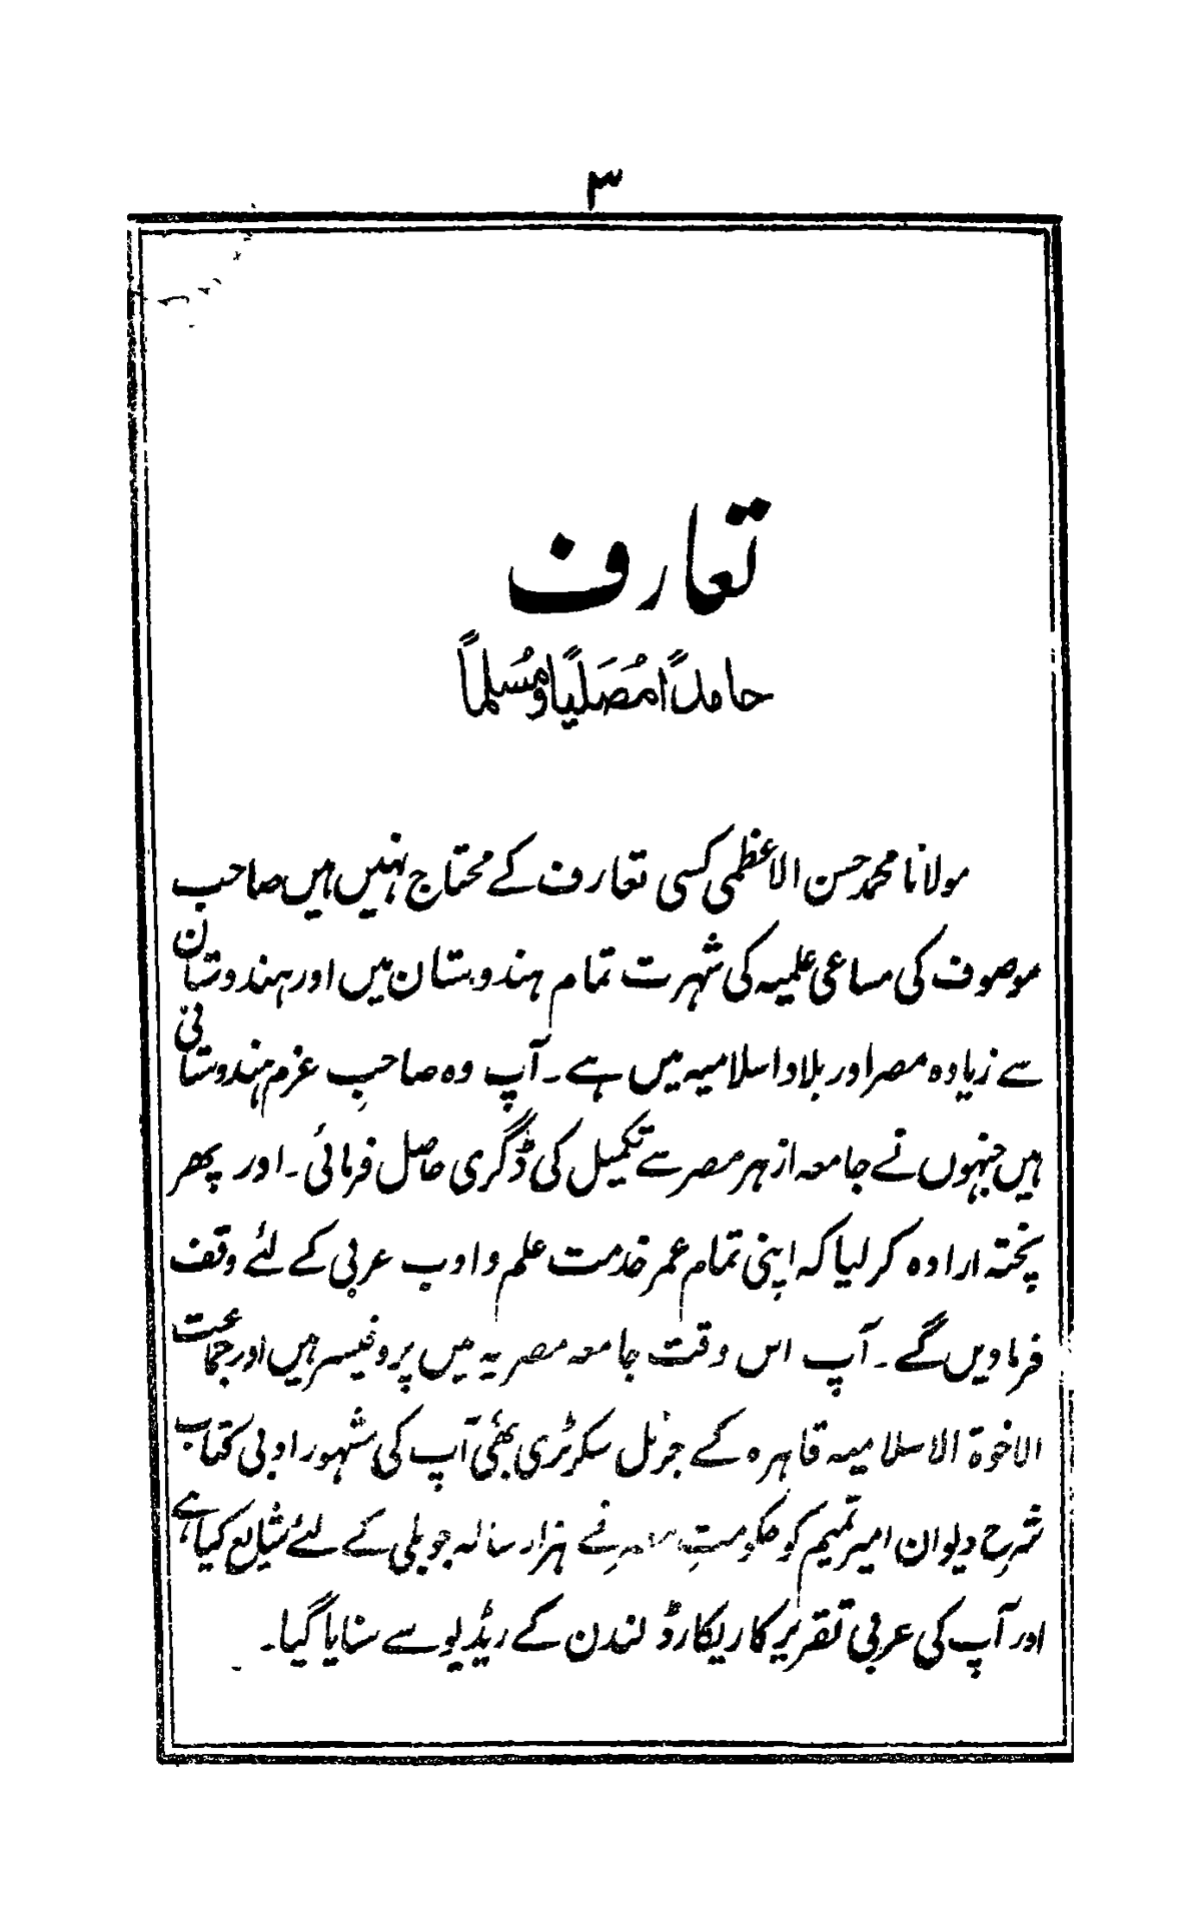 ۳
تعارف
حامداً مُصَلیًا ومُسلماً
مولانا محمد حسن الاعظمی کسی تعارف کے محتاج نہیں ہیں صاحب
موصوف کی مساعی علمیہ کی شہرت تمام ہندوستان میں اور ہندوستان
سے زیادہ مصر اور بلاد اسلامیہ میں ہے۔ آپ وہ صاحبِ عزم ہندوستانی
ہیں جنہوں نے جامعہ ازہر مصر سے تکمیل کی ڈگری حاصل فرمائی۔ اور پھر
پختہ ارادہ کر لیا کہ اپنی تمام عمر خدمت علم و ادب عربی کے لئے وقف
فرماویں گے۔ آپ اس وقت جامعہ مصریہ میں پروفیسر ہیں اور جماعت
الاخوۃ الاسلامیہ قاہرہ کے جرنل سکرٹری بھی آپ کی مشہور ادبی کتاب
شرح دیوان امیر تمیم کو حکومتِ نے ہزار سالہ جوبلی کے لئے شایع کیا ہے
اور آپ کی عربی تقریر کا ریکارڈ لندن کے ریڈیو سے سنایا گیا۔